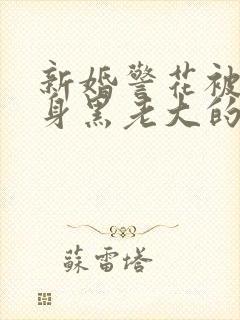 新婚警花被
身黑老大的
蘇雷塔